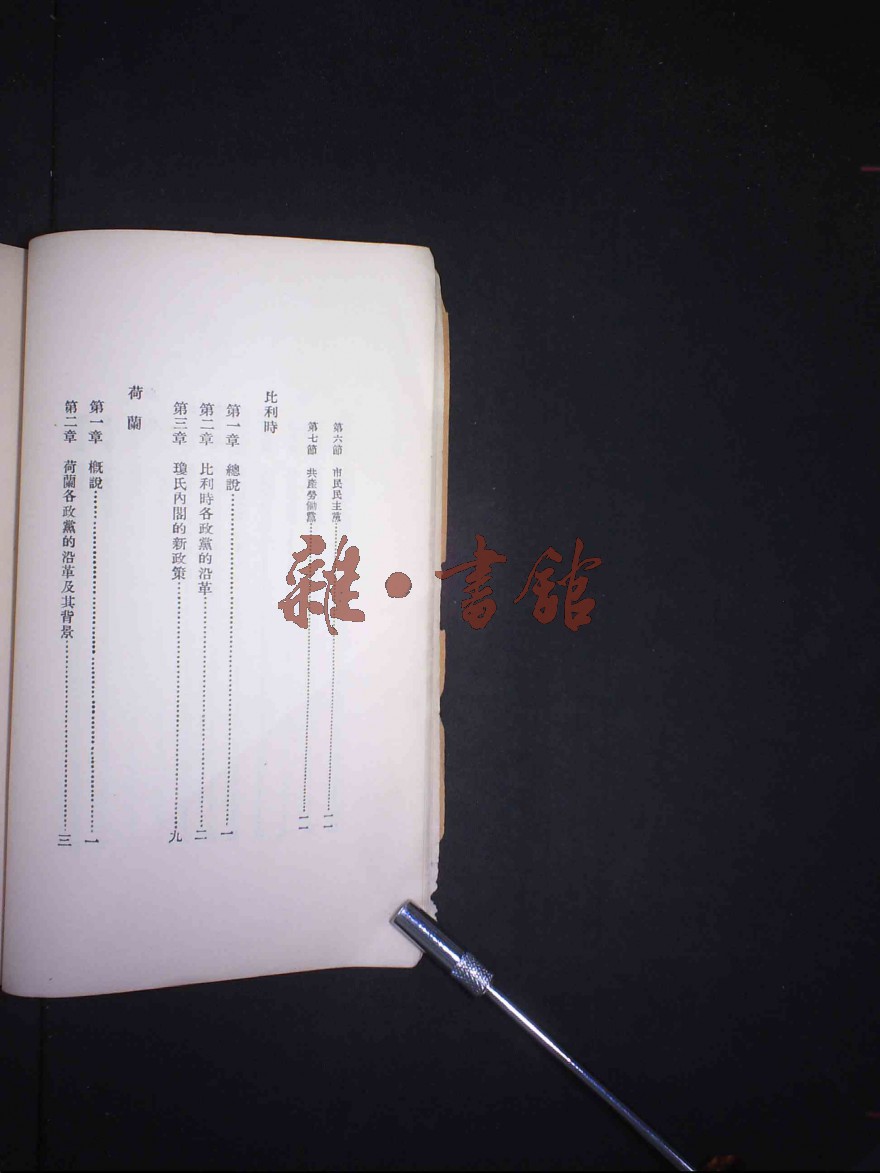 第六節　市民民主黨……………一一
第七節　共產勞働黨……………一一
比利時
第一章　總說……………一
第二章　比利時各政黨的沿革……………二
第三章　瓊氏內閣的新政策……………九
荷蘭
第一章　概說……………一
第二章　荷蘭各政黨的沿革及其背景……………三
雜·書館